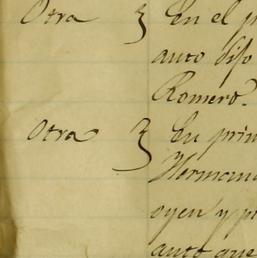 Otra } En el p
auto dijo
Romero.
Otra } En prim
Hermand
oyen y pr
auto que